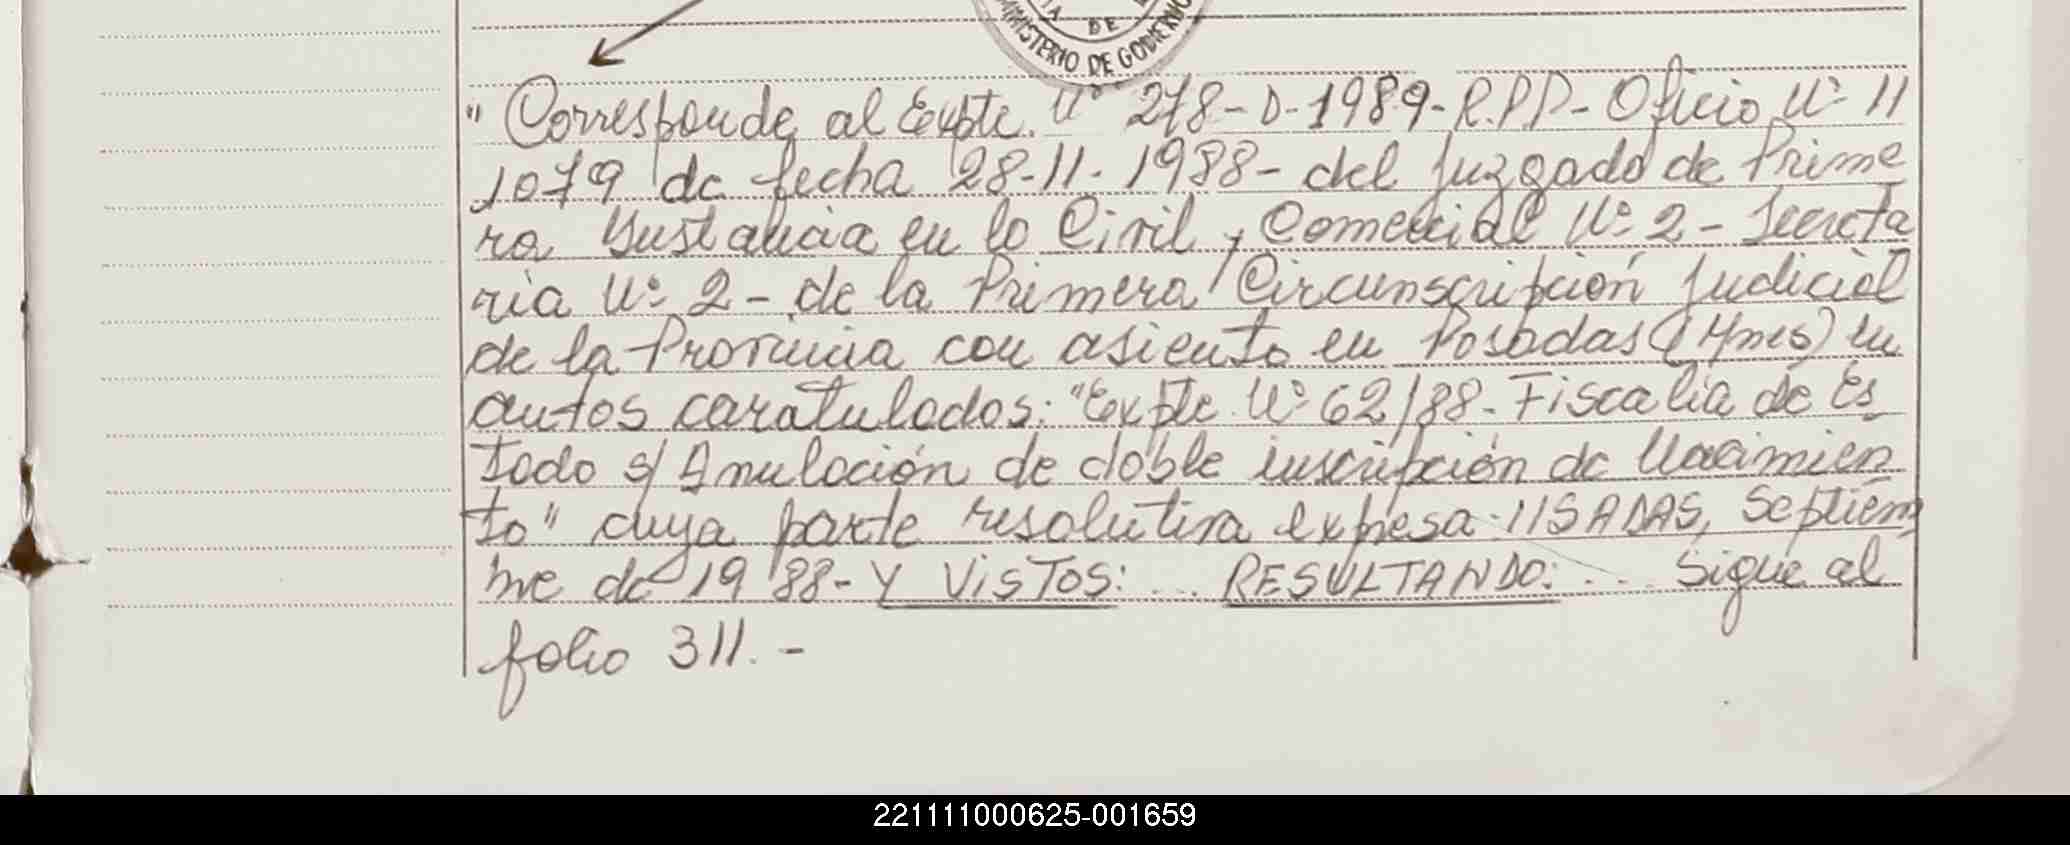 DE
MINISTERIO DE GOBIERNO
"Corresponde al Expte. Nº 278-D-1989-R.P.P- Oficio Nº 11
1079 de fecha 28-11-1988- del Juzgado de Prime
ra Instancia en lo Civil y Comercial Nº 2 - Secreta
ria Nº 2 - de la Primera Circunscripción Judicial
de la Provincia con asiento en Posadas (Mnes) en
autos caratulados: "Expte. Nº 62/88- Fiscalía de Es
tado s/ Anulación de doble inscripción de Nacimien
to" cuya parte resolutiva expresa: //SADAS, Septiem
bre de 1988- Y VISTOS: ... RESULTANDO: ... Sigue al
folio 311.-
221111000625-001659